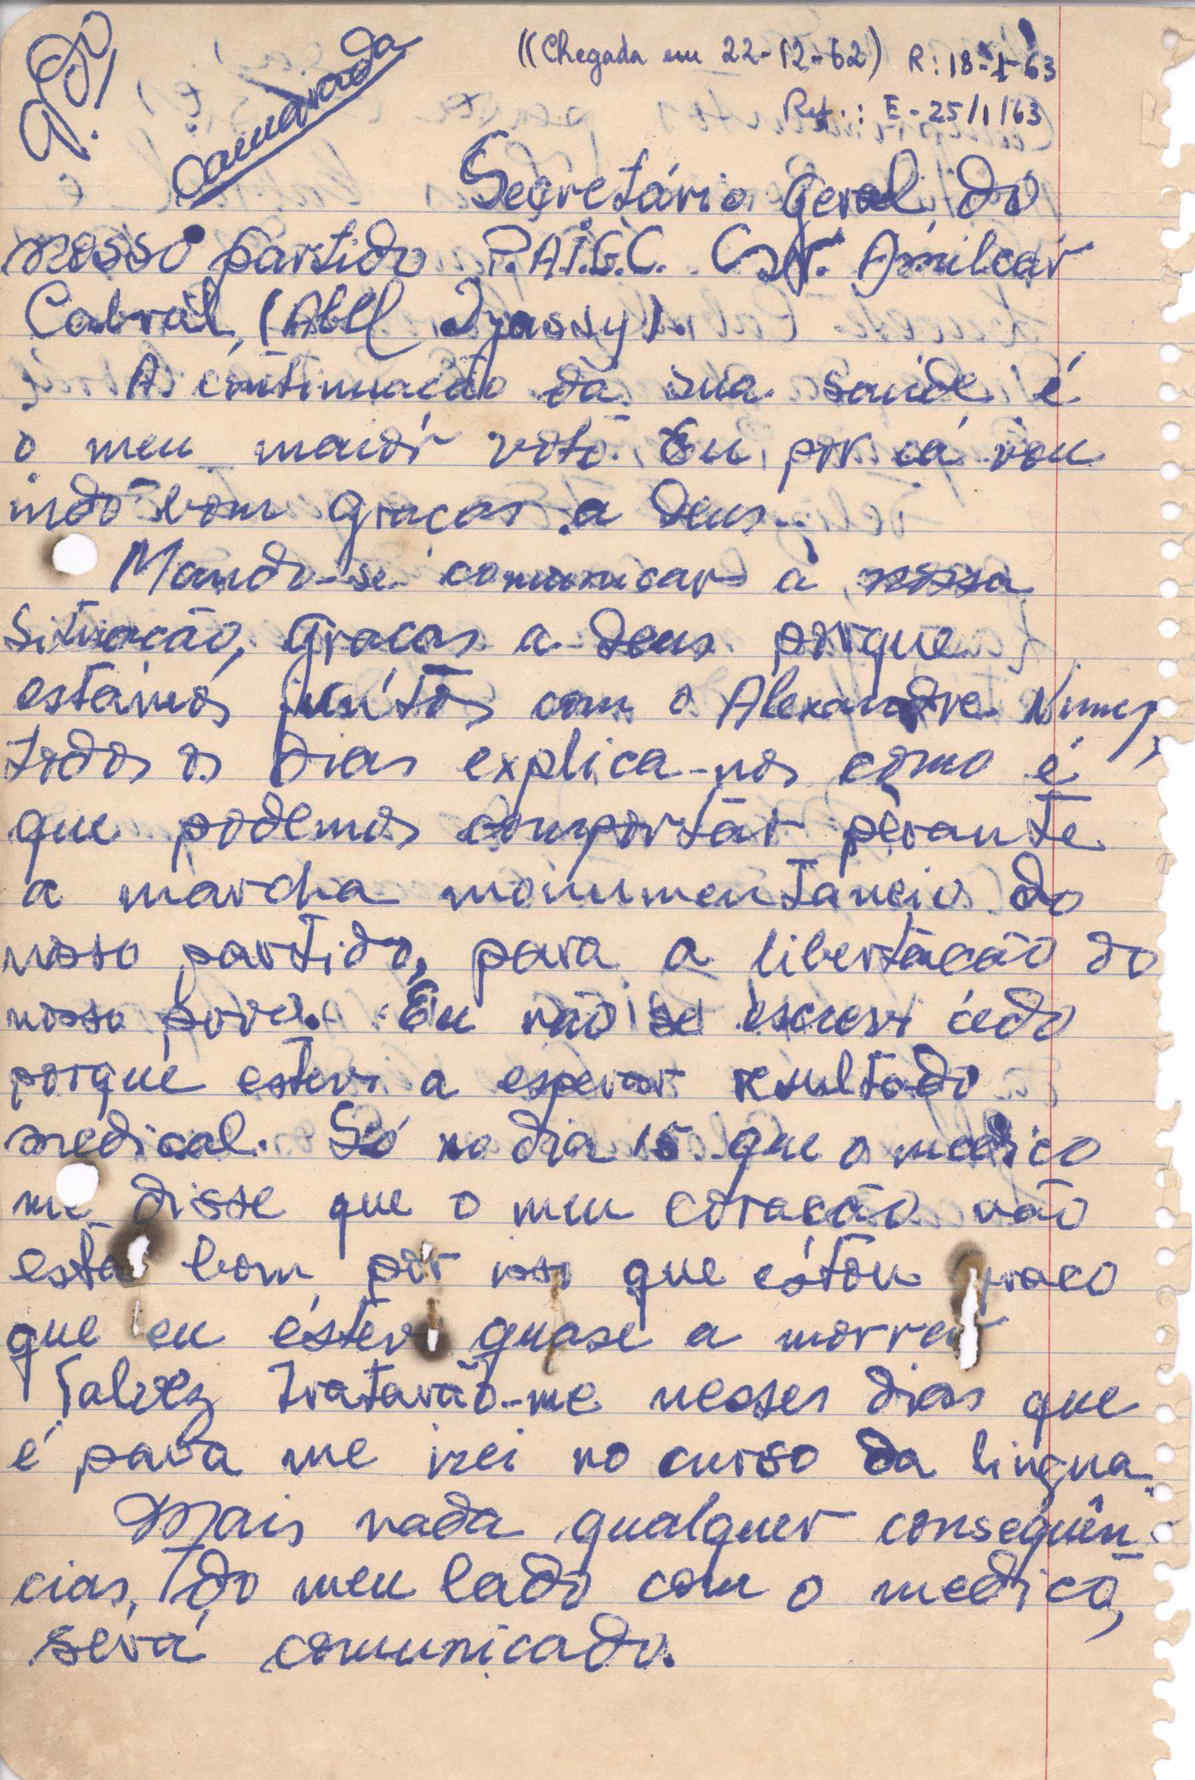 ((Chegada em 22-12-62) R: 18-1-63
camarada
E-25/1/63
Secretário geral do
nosso partido P.A.I.G.C. Amilcar
Cabral, (Abll Djassy).
A continuação da sua saúde é
o meu maior voto. Eu, por cá vou
indo bom graças a Deus.
Mando-se comunicar a nossa
situação, graças a Deus porque
estámos juntos com o Alexandre Nunes,
todos os dias explica-nos como é
que podemos comportar perante
a marcha monumentaneio do
nosso partido, para a libertação do
nosso povo. Eu não se escrevi cedo
porque estevi a esperar resultado
medical. Só no dia 15 que o medico
me disse que o meu coração não
está bom por isso que estou fraco
que eu éstevi quase a morrer
Talvez tratarão-me nesses dias que
é para me irei no curso da lingua.
Mais nada qualquer consequên-
cias, do meu lado com o medico,
será comunicado.